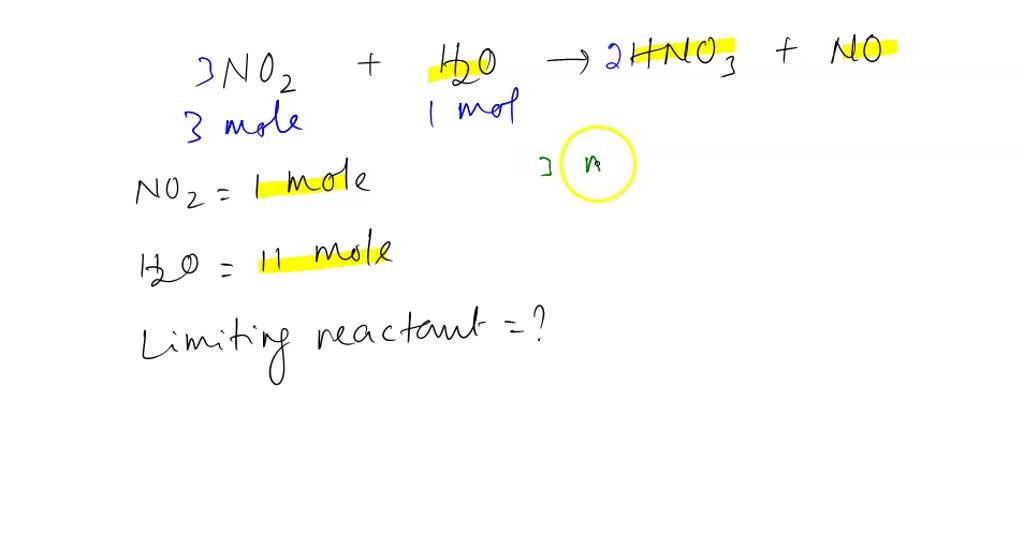 3NO₂ + H₂O → 2HNO₃ + NO
3 mole 1 mol
NO₂ = 1 mole 3 n
H₂O = 11 mole
Limiting reactant = ?